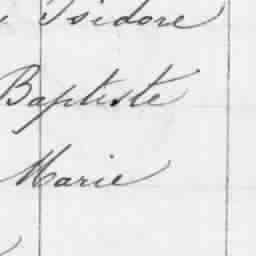 Isidore
Baptiste
Marie